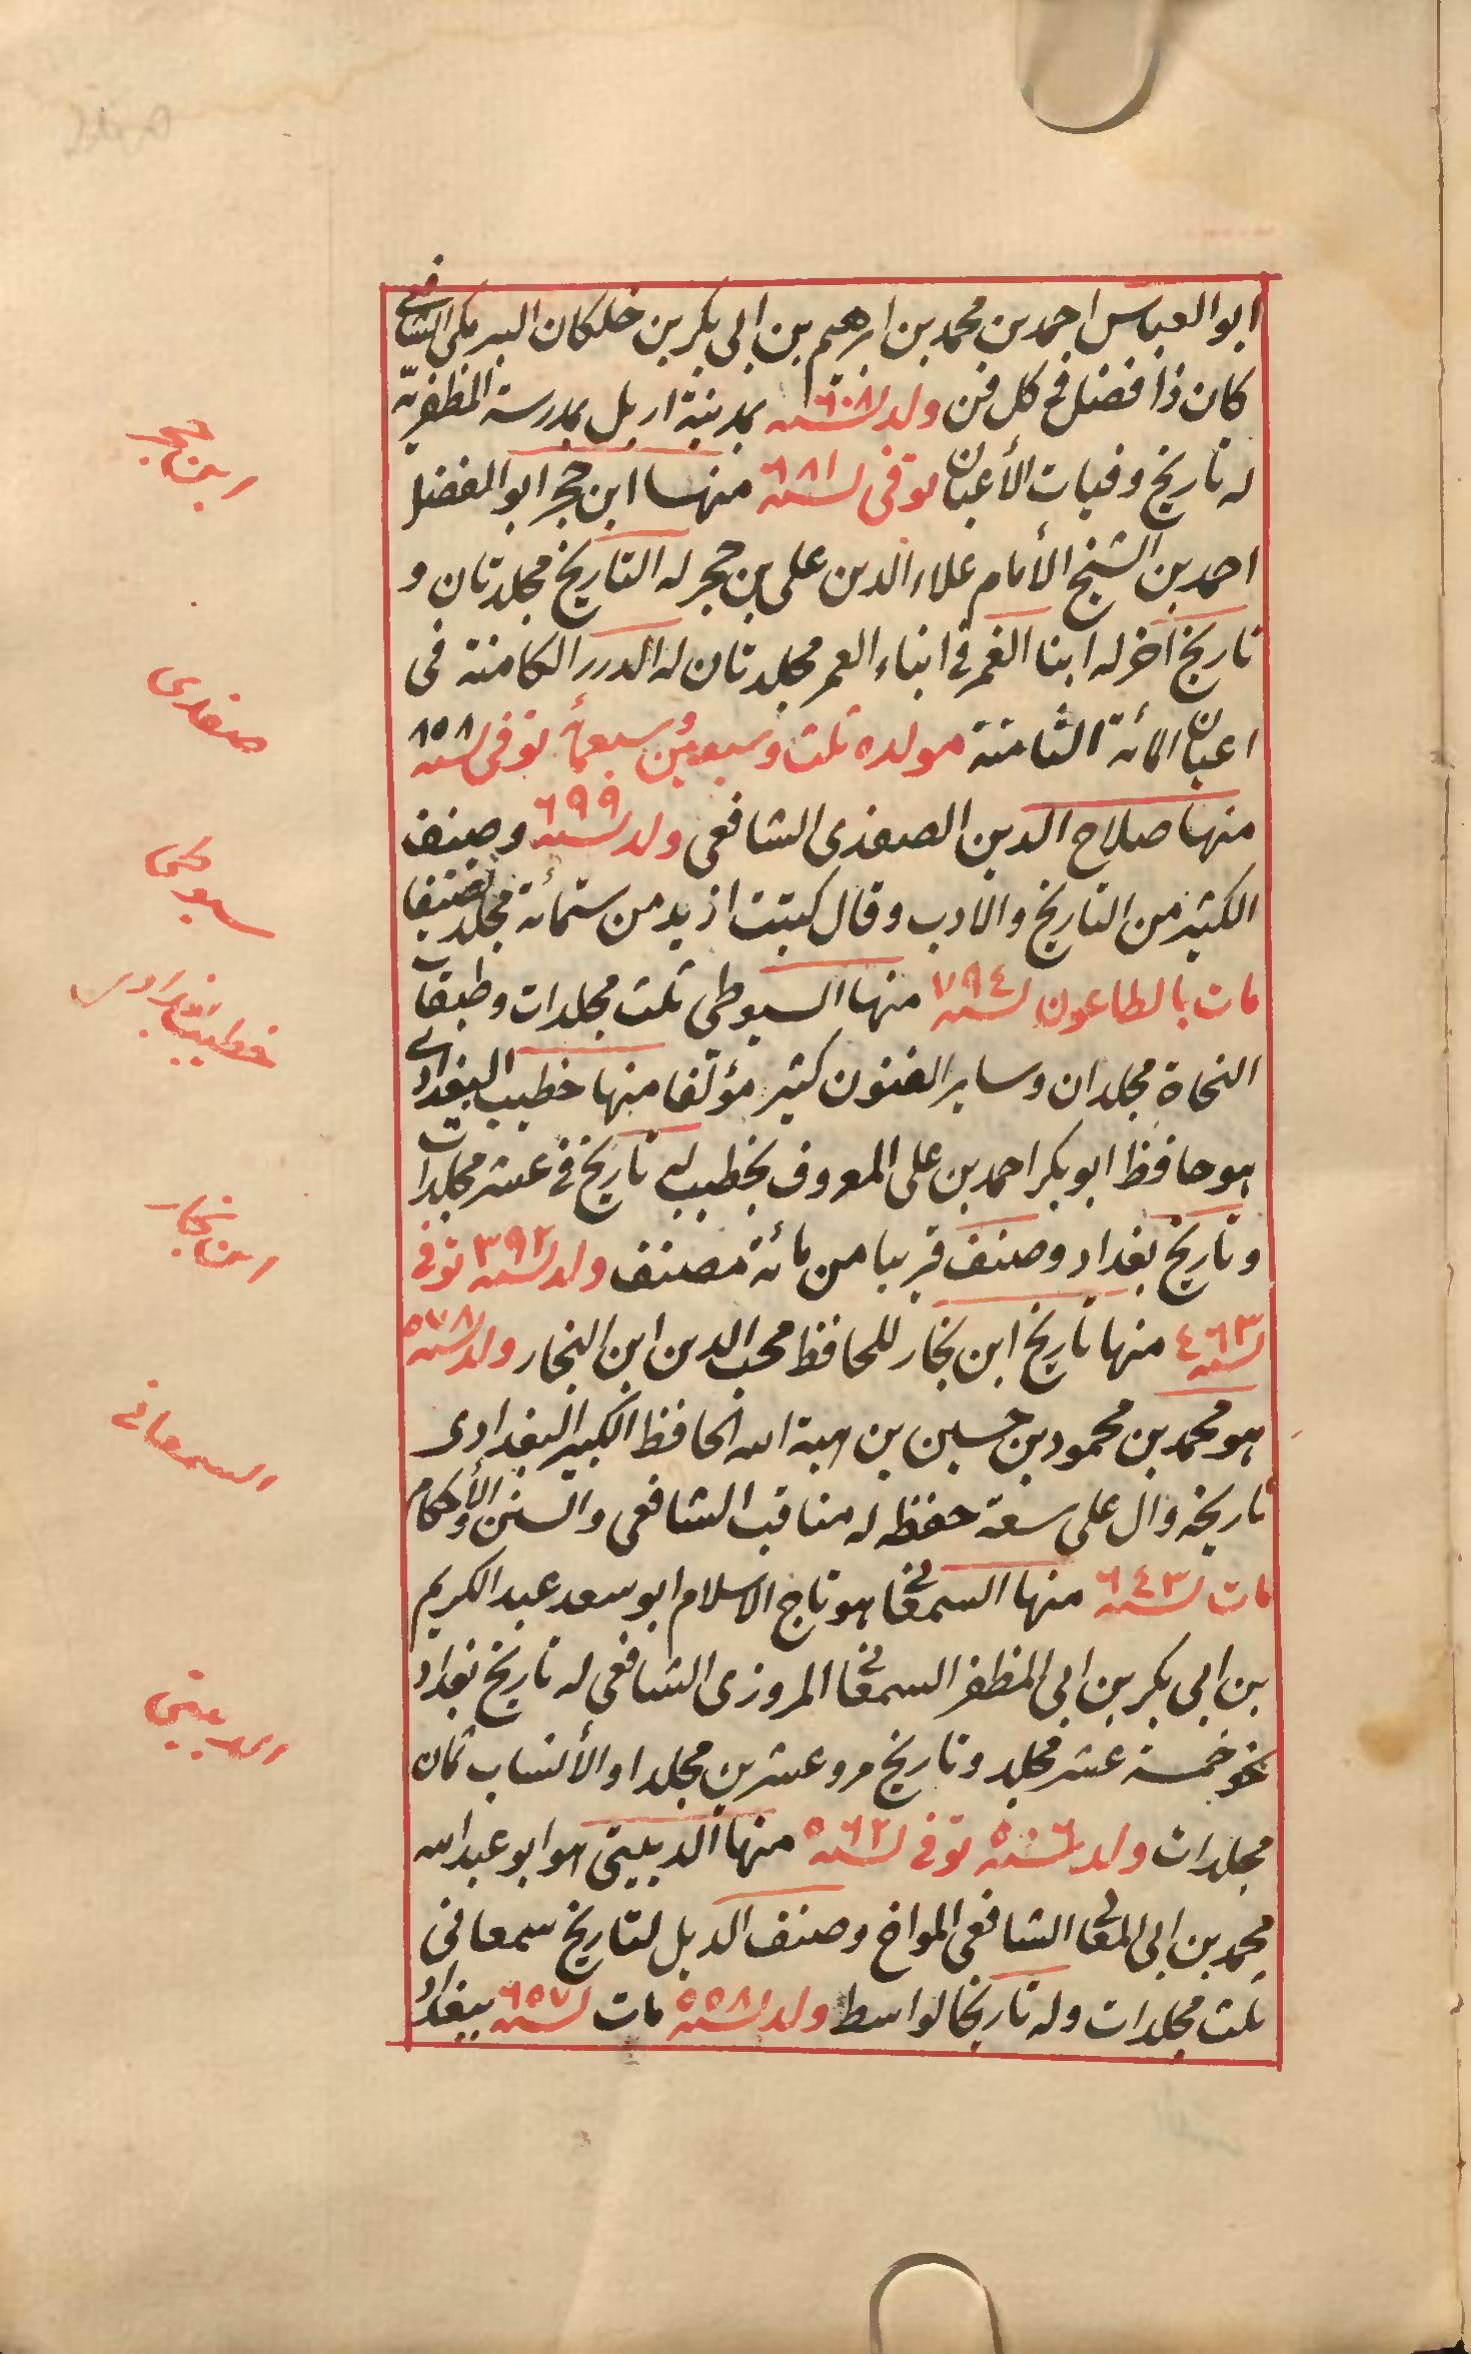 ابو العباس احمد بن محمد بن ابرهيم بن ابى بكر بن خلكان البرمكى الشافعى
كان ذا فضل فى كل فن ولد سنه ٦٠٨ بمدينة اربل بمدرسة المظفريّة
له تاريخ وفيات الأعيان توفى سنه ٦٨١ منها ابن حجر ابو الفضل
احمد بن الشيخ الأمام علاء الدين على بن حجر له التاريخ مجلدتان و
تاريخ آخر له ابنا الغمر فى ابناء العمر مجلدتان له الدرر الكامنة فى
اعيان المأئة الثامنة مولده ثلث وسبعين وسبعمأ توفى سنه ٨٥٨
منها صلاح الدين الصفدى الشافعى ولد سنه ٦٩٩ وصنف
الكثير من التاريخ والادب وقال كتبت ازيد من ستمائة مجلد تصنيفا
مات بالطاعون سنه ٧٩٤ منها السيوطى ثلث مجلدات وطبقات
النحاة مجلدان وساير الفنون كثير مؤلفا منها خطيب البغدادى
هو حافظ ابو بكر احمد بن على المعروف بخطيب له تاريخ فى عشر مجلدات
وتاريخ بغداد وصنف قريبا من مائة مصنف ولد سنه ٣٩٢ توفى
سنه ٤٦٣ منها تاريخ ابن نجار للحافظ محب الدين ابن النجار ولد سنه ٥٧٨
هو محمد بن محمود بن حسين بن هبة الله الحافظ الكبير البغدادى
تاريخه دال على سعة حفظه له مناقب الشافعى والسنن والأحكام
مات سنه ٦٤٣ منها السمعانى هو تاج الاسلام ابو سعد عبد الكريم
بن ابى بكر بن ابى المظفر السمعانى المروزى الشافعى له تاريخ بغداد
نحو خمسة عشر مجلد وتاريخ مرو عشرين مجلدا والأنساب ثمان
مجلدات ولد سنه ٥٠٦ توفى سنه ٥٦٢ منها الدبيثى هو ابو عبد الله
محمد بن ابى المعالى الشافعى المواخ وصنف الذيل لتاريخ سمعانى
ثلث مجلدات وله تاريخا لواسط ولد سنه ٥٥٨ مات سنه ٦٥٧ ببغداد
ابن حجر
صفدى
سيوطى
خطيب بغدادى
ابن نجار
السمعانى
الدبيثى